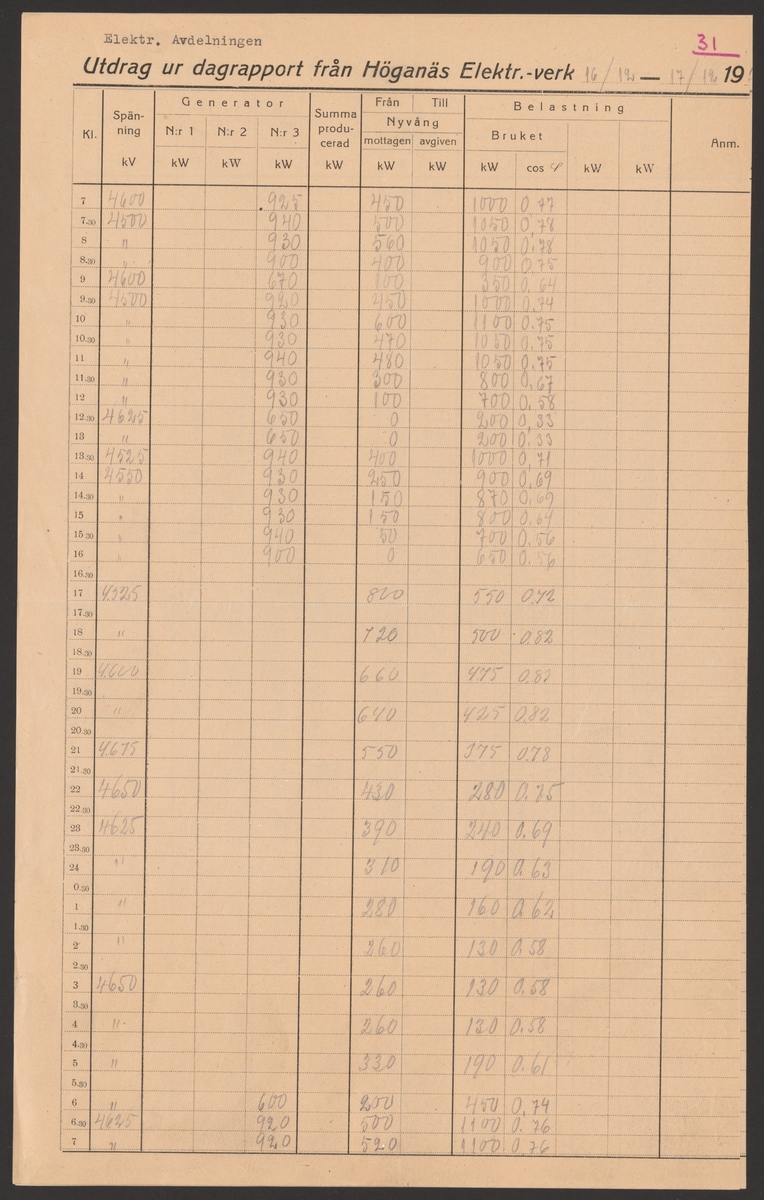 Elektr. Avdelningen
31
Utdrag ur dagrapport från Höganäs Elektr.-verk 16/12 — 17/12 19
Kl. Spänning kV Generator N:r 1 kW N:r 2 kW N:r 3 kW Summa producerad kW Från Till Nyvång mottagen kW avgiven kW Belastning Bruket kW cos φ kW kW Anm.
7 4600 925 450 1000 0,77
7.30 4500 940 500 1050 0,78
8 " 930 560 1050 0.78
8.30 " 900 400 900 0,75
9 4600 670 100 350 0,64
9.30 4500 920 450 1000 0,74
10 " 930 600 1100 0.75
10.30 " 930 470 1050 0.75
11 " 940 480 1050 0.75
11.30 " 930 300 800 0,67
12 " 930 100 700 0,58
12.30 4625 650 0 200 0,33
13 " 650 0 200 0.33
13.30 4525 940 400 1000 0,71
14 4550 930 250 900 0,69
14.30 " 930 150 870 0,69
15 " 930 150 800 0,64
15.30 " 940 50 700 0,56
16 " 900 0 650 0.56
16.30
17 4525 800 550 0.72
17.30
18 " 720 500 0.82
18.30
19 4600 660 475 0.82
19.30
20 " 640 425 0.82
20.30
21 4675 550 375 0.78
21.30
22 4650 430 280 0.75
22.30
23 4625 390 240 0.69
23.30
24 " 310 190 0.63
0.30
1 " 280 160 0.62
1.30
2 " 260 130 0.58
2.30
3 4650 260 130 0.58
3.30
4 " 260 130 0.58
4.30
5 " 330 190 0.61
5.30
6 " 600 200 450 0,74
6.30 4625 920 500 1100 0.76
7 " 920 520 1100 0.76